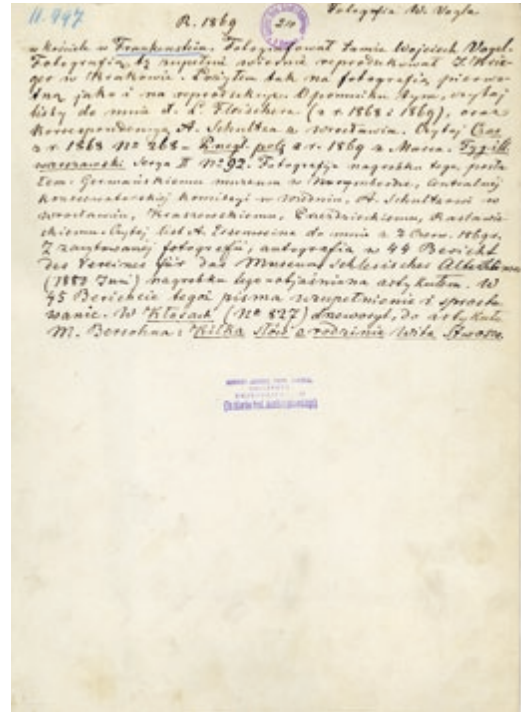 11.947
R. 1869
Fotografia W. Vogla
w kościele w Frankenstein. Fotografował tamże Wojciech Vogel.
Fotografią tą zupełnie wiernie reprodukował I. Krie-
ger w Krakowie. Położyłem tak na fotografią pierwo-
tną jako i na reprodukcye. O pomniku tym, czytaj
listy do mnie d. L. Fleischera (z r. 1868 i 1869), oraz
korrespondencyą A. Schultza z Wrocławia. Czytaj Czas
z r. 1868 No 268 – Przegl. pols. z r. 1869 z Marca. Tyg. ill.
warszawski Serya II No 92. Fotografije nagrobku tego, posła
łem: Germańskiemu muzeum w Nurymberdze, Centralnéj
konserwatorskiéj komisyi w Wiédniu, A. Schultzowi w
Wrocławiu, Kraszewskiemu, Rastawie-
ckiemu. Czytaj list A. Essenweina do mnie z 2 Czerw. 1869 r.
Z fotografii, autografia w 44 Bericht
des Vereines für das Museum schlesischer Alterthümer
(1880 Juni) nagrobku tego objaśniana artykułem. W
45 Berichcie tegoż pisma uzupełnienie i sprosto
wanie. W Kłosach (No 827) do artykułu
M. Bersohna: Kilka słów o rodzinie Wita Stwosza.